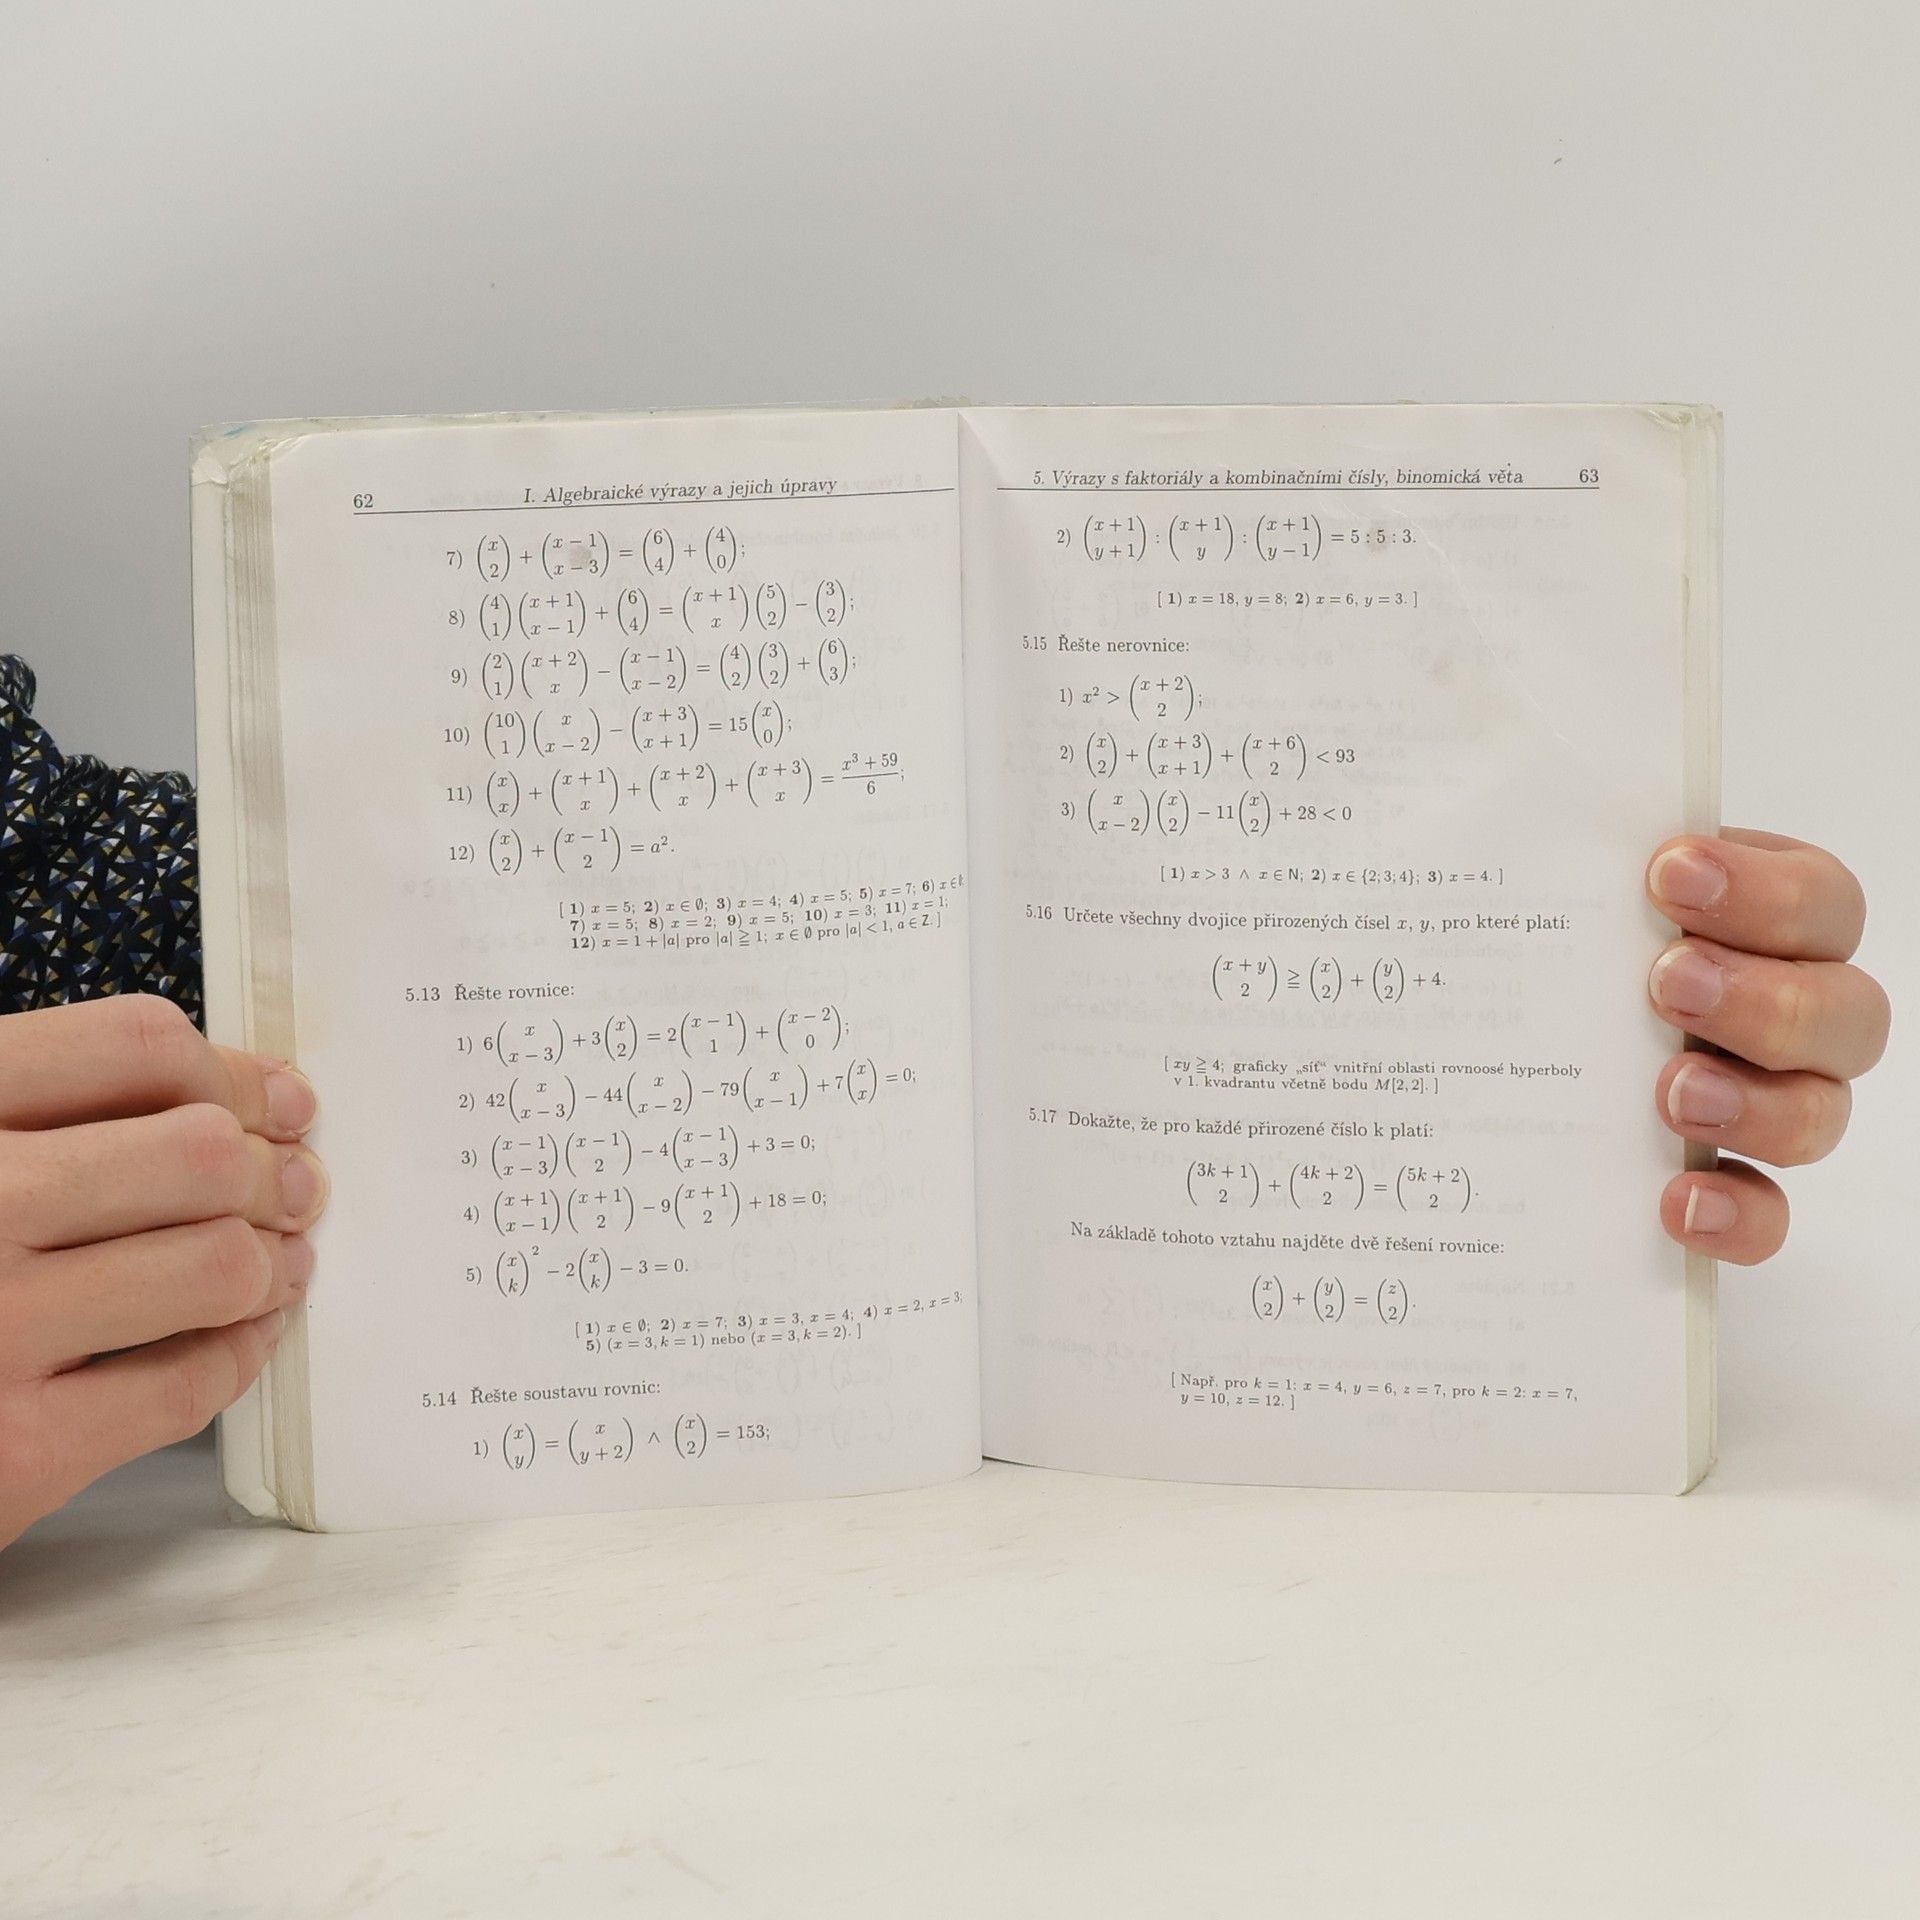 62 I. Algebraické výrazy a jejich úpravy
7) (x 2) + (x − 1 x − 3) = (6 4) + (4 0);
8) (4 1)(x + 1 x − 1) + (6 4) = (x + 1 x)(5 2) − (3 2);
9) (2 1)(x + 2 x) − (x − 1 x − 2) = (4 2)(3 2) + (6 3);
10) (10 1)(x x − 2) − (x + 3 x + 1) = 15(x 0);
11) (x x) + (x + 1 x) + (x + 2 x) + (x + 3 x) = x³ + 59 / 6;
12) (x 2) + (x − 1 2) = a².
[ 1) x = 5; 2) x ∈ ∅; 3) x = 4; 4) x = 5; 5) x = 7; 6) x ∈
7) x = 5; 8) x = 2; 9) x = 5; 10) x = 3; 11) x = 1;
12) x = 1 + |a| pro |a| ≧ 1; x ∈ ∅ pro |a| < 1, a ∈ Z. ]
5.13 Řešte rovnice:
1) 6(x x − 3) + 3(x 2) = 2(x − 1 1) + (x − 2 0);
2) 42(x x − 3) − 44(x x − 2) − 79(x x − 1) + 7(x x) = 0;
3) (x − 1 x − 3)(x − 1 2) − 4(x − 1 x − 3) + 3 = 0;
4) (x + 1 x − 1)(x + 1 2) − 9(x + 1 2) + 18 = 0;
5) (x k)² − 2(x k) − 3 = 0.
[ 1) x ∈ ∅; 2) x = 7; 3) x = 3, x = 4; 4) x = 2, x = 3;
5) (x = 3, k = 1) nebo (x = 3, k = 2). ]
5.14 Řešte soustavu rovnic:
1) (x y) = (x y + 2) ∧ (x 2) = 153;
5. Výrazy s faktoriály a kombinačními čísly, binomická věta 63
2) (x + 1 y + 1) : (x + 1 y) : (x + 1 y − 1) = 5 : 5 : 3.
[ 1) x = 18, y = 8; 2) x = 6, y = 3. ]
5.15 Řešte nerovnice:
1) x² > (x + 2 2);
2) (x 2) + (x + 3 x + 1) + (x + 6 2) < 93
3) (x x − 2)(x 2) − 11(x 2) + 28 < 0
[ 1) x > 3 ∧ x ∈ N; 2) x ∈ {2; 3; 4}; 3) x = 4. ]
5.16 Určete všechny dvojice přirozených čísel x, y, pro které platí:
(x + y 2) ≧ (x 2) + (y 2) + 4.
[ xy ≧ 4; graficky „síť“ vnitřní oblasti rovnoosé hyperboly
v 1. kvadrantu včetně bodu M[2, 2]. ]
5.17 Dokažte, že pro každé přirozené číslo k platí:
(3k + 1 2) + (4k + 2 2) = (5k + 2 2).
Na základě tohoto vztahu najděte dvě řešení rovnice:
(x 2) + (y 2) = (z 2).
[ Např. pro k = 1: x = 4, y = 6, z = 7, pro k = 2: x = 7,
y = 10, z = 12. ]